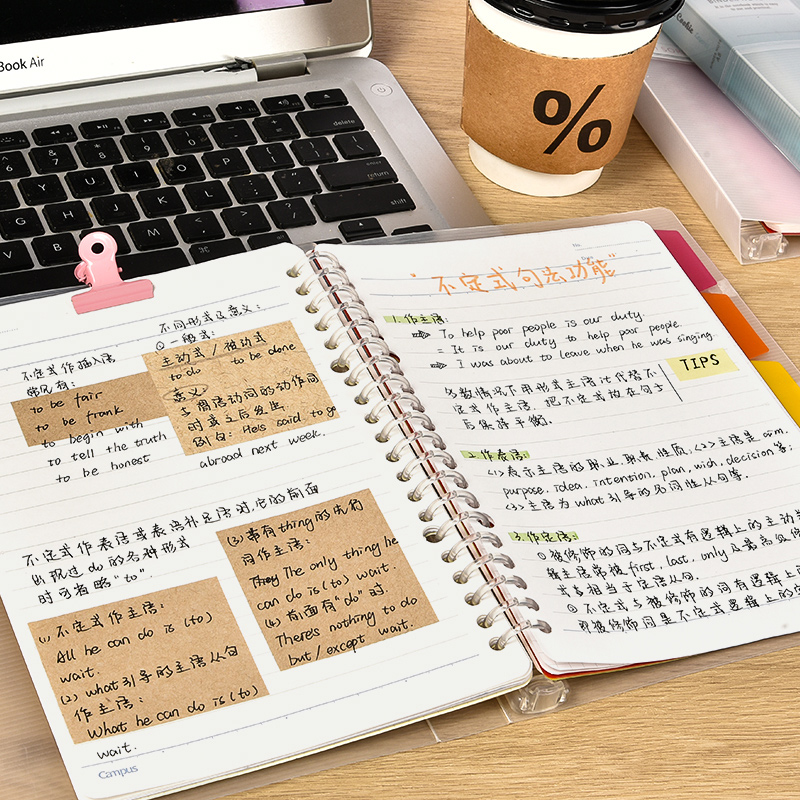 Book Air
delete
return
shift
%
不定式作插入语
常见有:
to be fair
to be frank
to begin with
to tell the truth
to be honest
不同形式及意义:
① 一般式:
主动式 / 被动式
to do to be done
意义
与谓语动词的动作同
时或之后发生
例句: He's said to go
abroad next week.
不定式作表语或表语补足语时,它的前面
出现过do的各种形式
时可省略"to".
(1) 不定式作主语:
All he can do is (to)
wait.
(2) what引导的主语从句
作主语:
What he can do is (to)
wait.
(3) 带有thing的先行
词作主语:
The only thing he
can do is (to) wait.
(4) 前面有"do"时.
There's nothing to do
but / except wait.
Campus
"不定式句法功能"
1. 作主语:
To help poor people is our duty.
= It is our duty to help poor people.
I was about to leave when he was singing.
TIPS
多数情况下用形式主语it代替不
定式作主语, 把不定式放在句子
后保持平衡.
2. 作表语:
<1> 表示主语的职业,职责,性质, <2> 主语是 aim,
purpose, idea, intention, plan, wish, decision等;
<3> 主语为what引导的名词性从句等.
3. 作定语:
① 被修饰的词与不定式有逻辑上的主动关
first, last, only
式等相当于定语从句.
② 不定式与被修饰的词有逻辑上的
即被修饰词是不定式逻辑上的